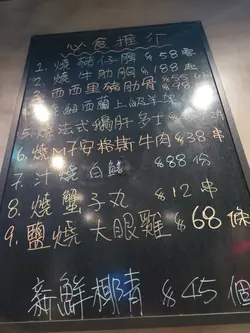 必食推介
1. 燒豬仔腳 $58
2. 燒牛肋胸 $188
3. 西西里豬肋骨 $98
紐西蘭上級羊架
5. 燒法式鵝肝多士
6. 燒M7安格斯牛肉 $38串
7. 汁燒白鱔 $88份
8. 燒蟹子丸 $12串
9. 鹽燒大眼雞 $68條
新鮮椰青 $45個